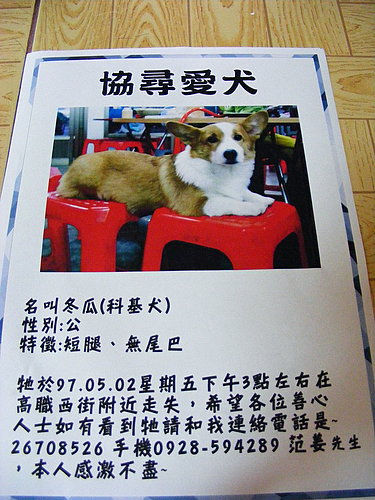 協尋愛犬
名叫冬瓜(科基犬)
性別:公
特徵:短腿、無尾巴
牠於97.05.02星期五下午3點左右在
高職西街附近走失，希望各位善心
人士如有看到牠請和我連絡電話是~
26708526 手機0928-594289 范姜先生
，本人感激不盡~